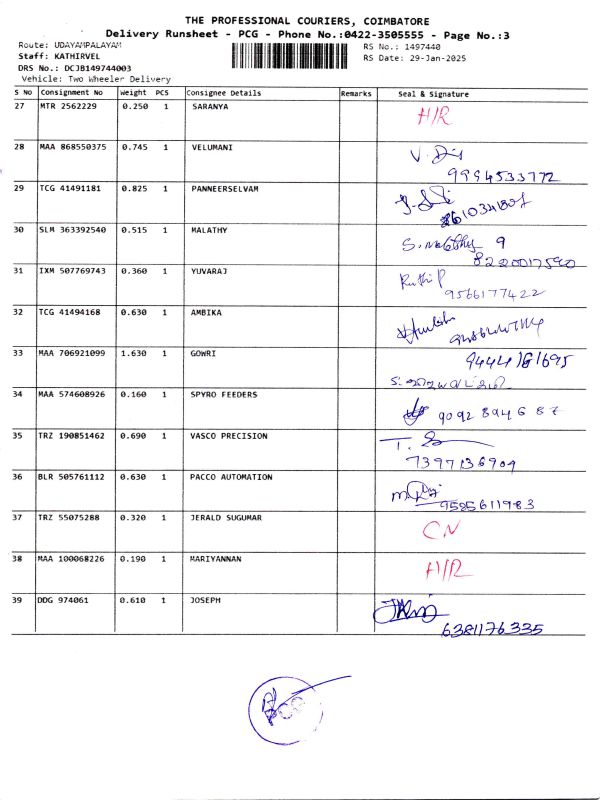 THE PROFESSIONAL COURIERS, COIMBATORE
Delivery Runsheet - PCG - Phone No.:0422-3505555 - Page No.:3
Route: UDAYAMPALAYAM
RS No.: 1497440
Staff: KATHIRVEL
RS Date: 29-Jan-2025
DRS No.: DCJB149744003
Vehicle: Two Wheeler Delivery
S No Consignment No Weight PCS Consignee Details Remarks Seal & Signature
27 MTR 2562229 0.250 1 SARANYA H/R
28 MAA 868550375 0.745 1 VELUMANI V. 
9994533772
29 TCG 41491181 0.825 1 PANNEERSELVAM
30 SLM 363392540 0.515 1 MALATHY S. Malathy 9
8220017590
31 IXM 507769743 0.360 1 YUVARAJ Ruthi P
9566177422
32 TCG 41494168 0.630 1 AMBIKA
33 MAA 706921099 1.630 1 GOWRI 9444161695
34 MAA 574608926 0.160 1 SPYRO FEEDERS 9092894687
35 TRZ 190851462 0.690 1 VASCO PRECISION T.
7397136909
36 BLR 505761112 0.630 1 PACCO AUTOMATION
9585611983
37 TRZ 55075288 0.320 1 JERALD SUGUMAR CN
38 MAA 100068226 0.190 1 MARIYANNAN H/R
39 DDG 974061 0.610 1 JOSEPH
6381176335